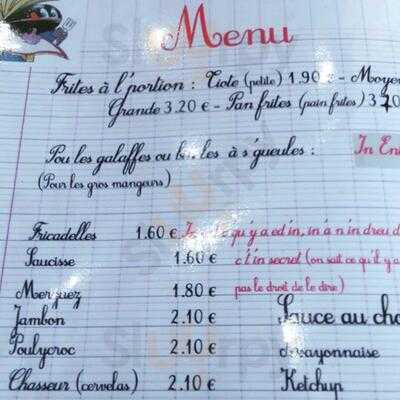 Menu
Frites à l'portion : Tiote (petite) 1.90 € - Moyen
Grande 3.20 € - Pan frites (pain frites) 3.70
Pou les galaffes ou à s'gueules :
In En
(Pour les gros mangeurs)
Fricadelles 1.60 € qu'y a ed in, in a n'in dreu d
Saucisse 1.60 € c'l'in secret (on sait ce qu'il y a
Merguez 1.80 € pas le droit de le dire)
Jambon 2.10 € Sauce au cho
Poulycroc 2.10 € Mayonnaise
Chasseur (cervelas) 2.10 € Ketchup